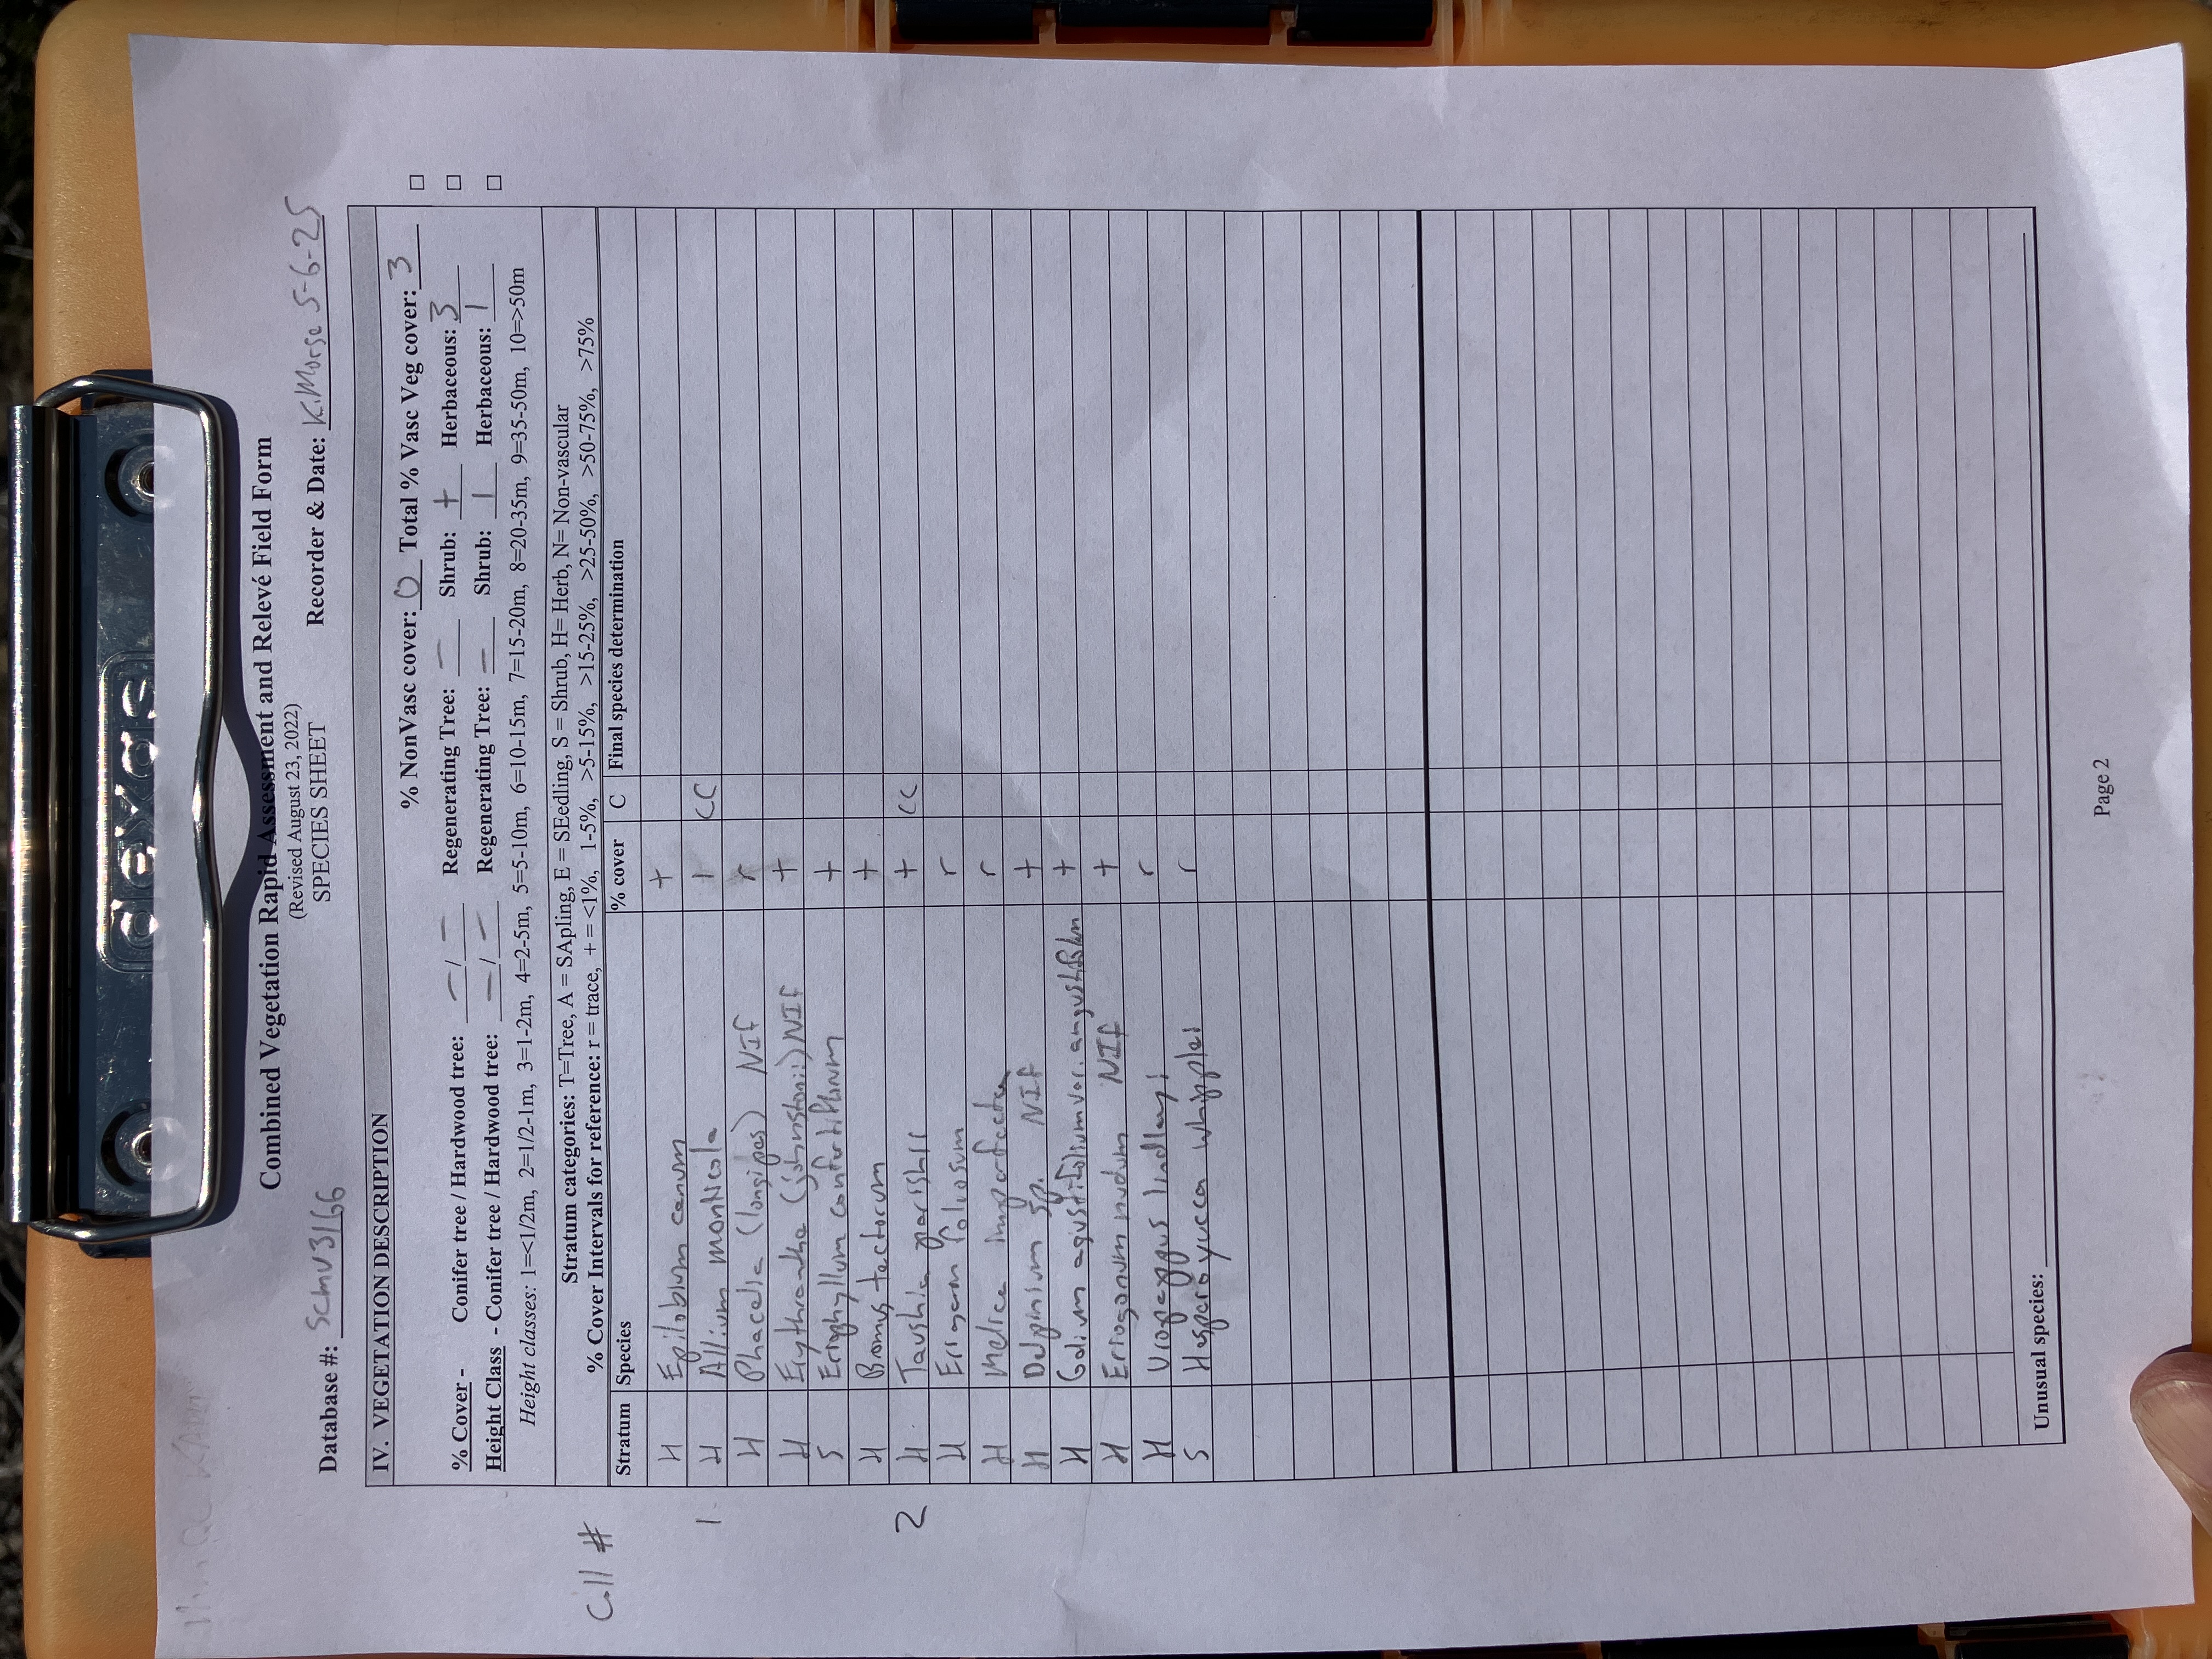 dexas
Combined Vegetation Rapid Assessment and Relevé Field Form
(Revised August 23, 2022)
SPECIES SHEET
Database #: SCMU3166 Recorder & Date: K.Morse 5-6-25
IV. VEGETATION DESCRIPTION
% NonVasc cover: 0 Total % Vasc Veg cover: 3
% Cover - Conifer tree / Hardwood tree: – / – Regenerating Tree: – Shrub: + Herbaceous: 3
Height Class - Conifer tree / Hardwood tree: – / – Regenerating Tree: – Shrub: 1 Herbaceous: 1
Height classes: 1=<1/2m, 2=1/2-1m, 3=1-2m, 4=2-5m, 5=5-10m, 6=10-15m, 7=15-20m, 8=20-35m, 9=35-50m, 10=>50m
Stratum categories: T=Tree, A = SApling, E = SEedling, S = Shrub, H= Herb, N= Non-vascular
% Cover Intervals for reference: r = trace, + = <1%, 1-5%, >5-15%, >15-25%, >25-50%, >50-75%, >75%
Coll #
Stratum Species % cover C Final species determination
H Epilobium canum +
1 H Allium monticola 1 CC
H Phacelia (longipes) NIF r
H Erythranthe (johnstonii) NIF +
S Eriophyllum confertiflorum +
H Bromus tectorum +
2 H Taushia parishii + CC
H Erigeron foliosum r
H Melica imperfecta r
H Delpinium sp. NIF +
H Galium agustifolium var. angustifolium +
H Eriogonum nudum NIF +
H Uropappus lindleyi r
S Hesperoyucca whipplei r
Unusual species:
Page 2